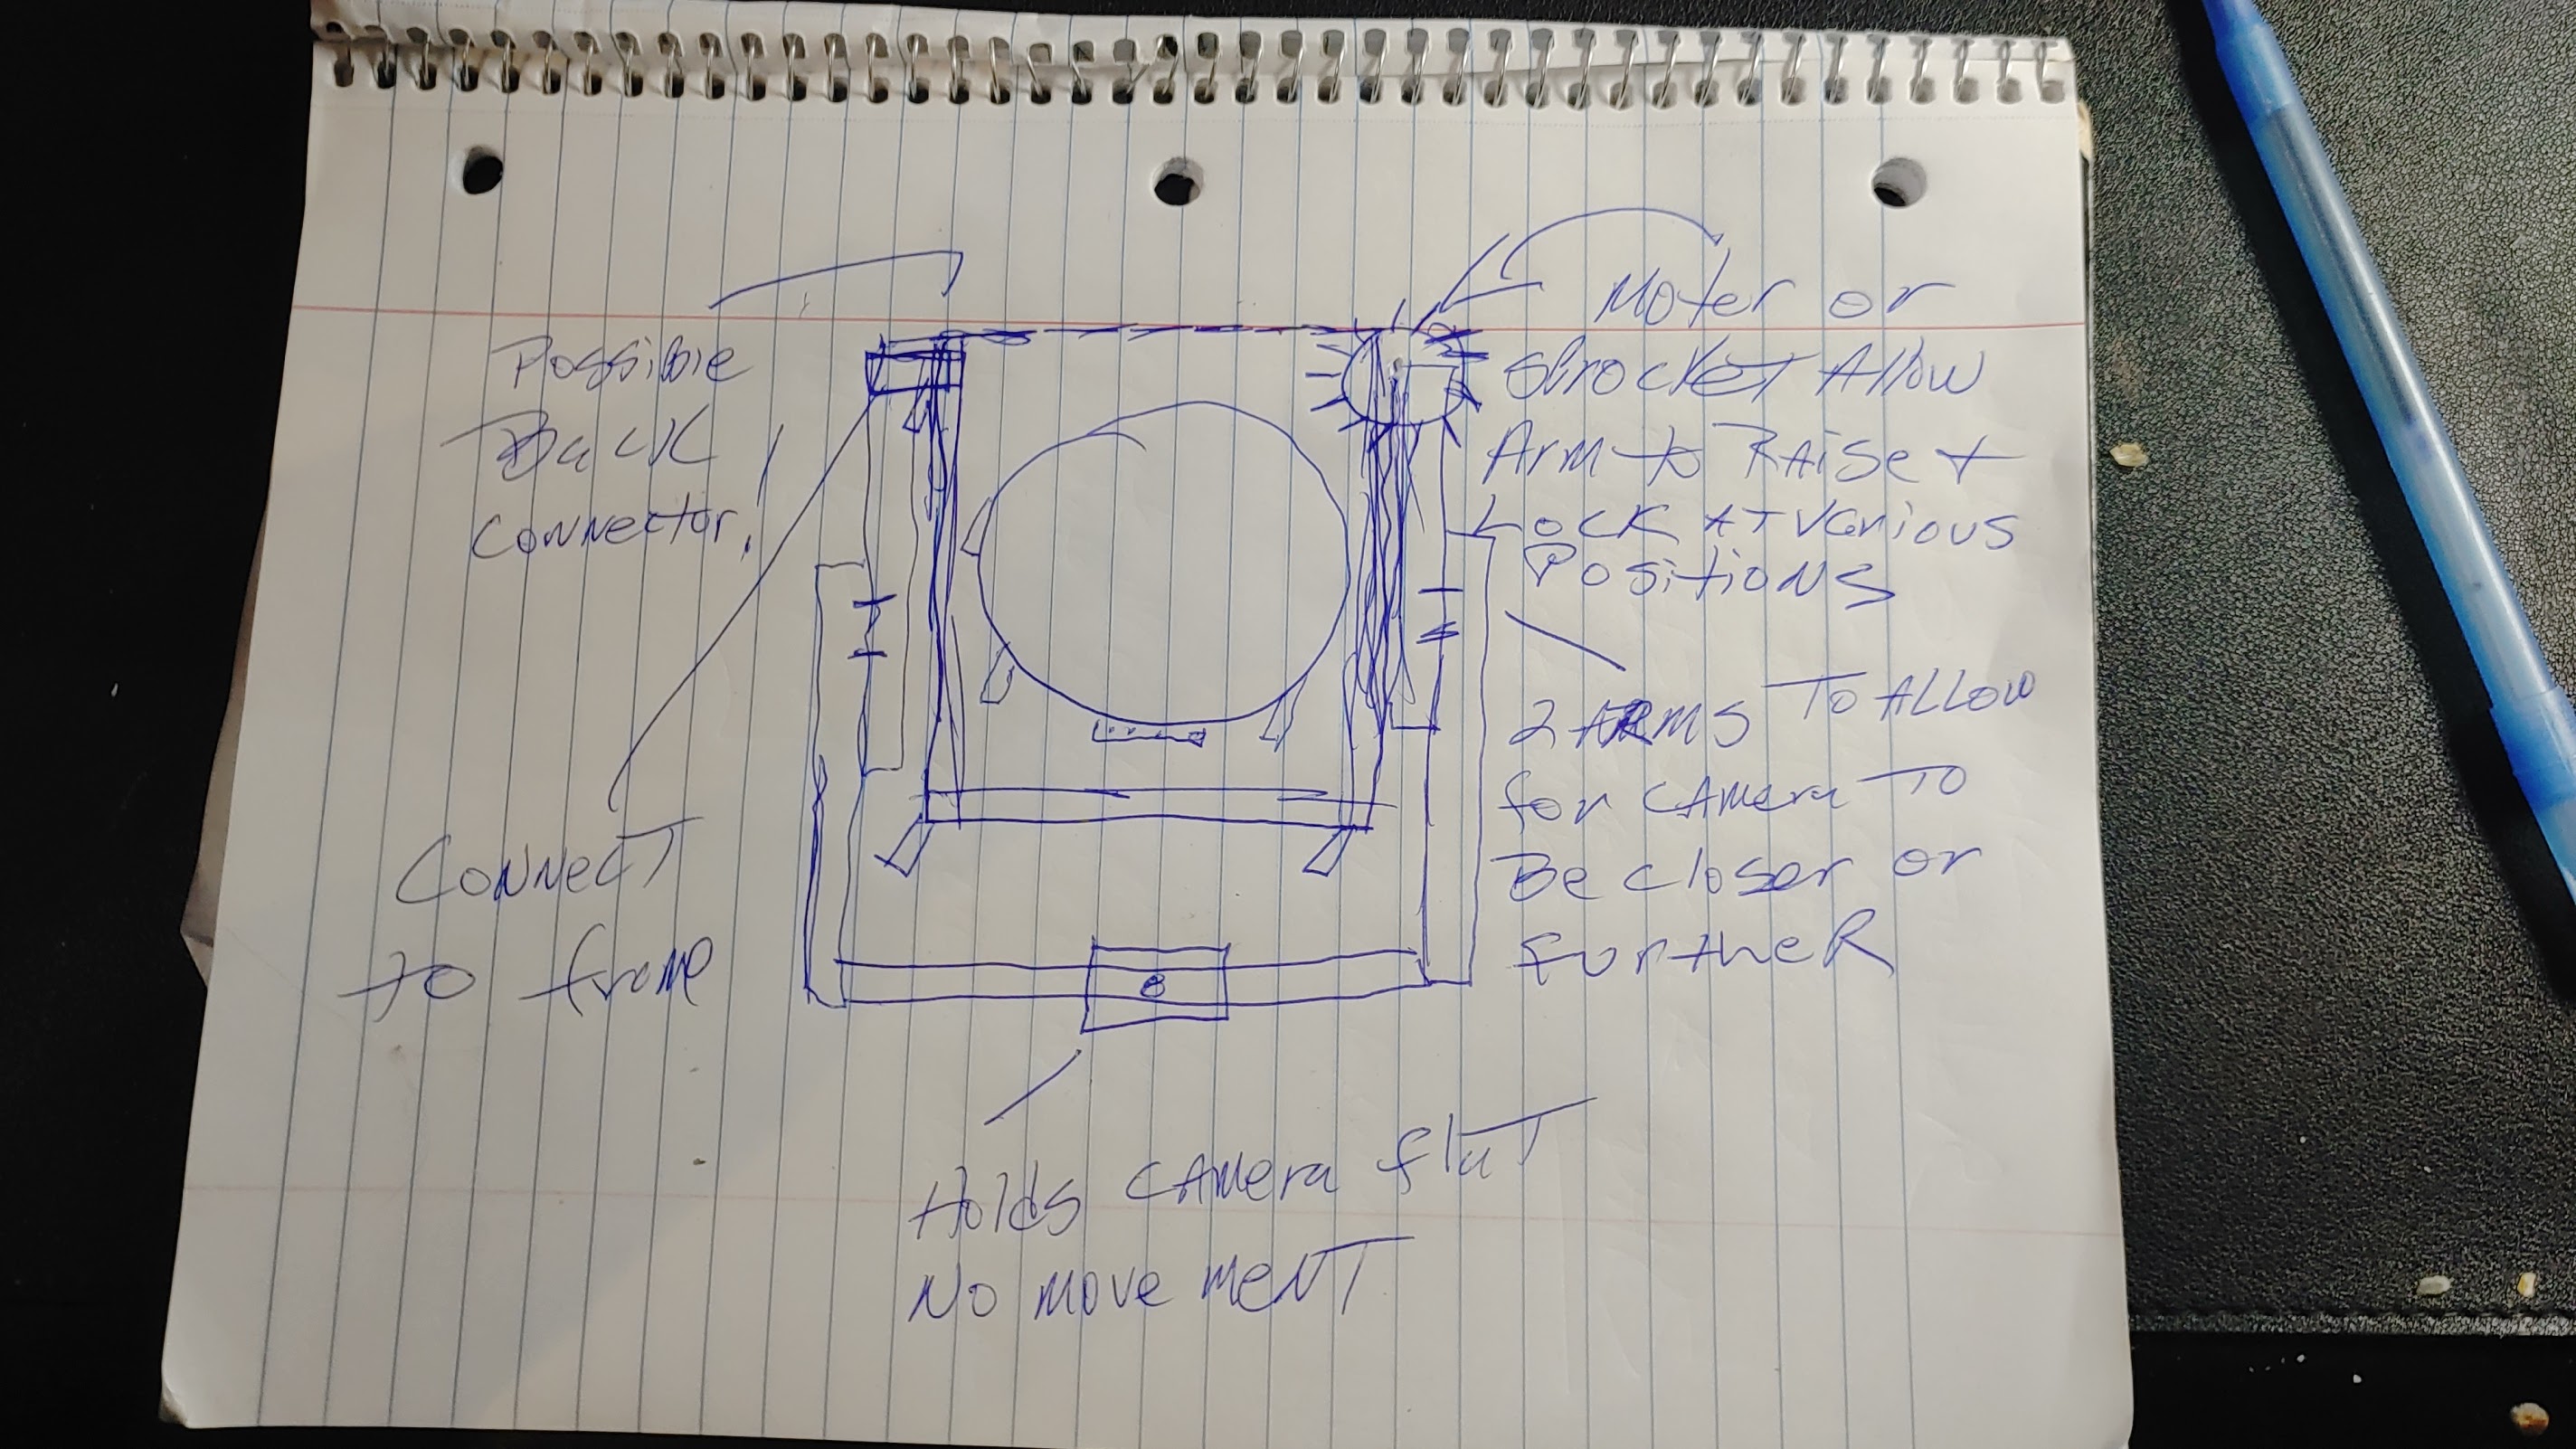 Possible
Back
Connector!
Connect
to frame
Moter or
Sprocket Allow
Arm to Raise +
Lock AT Various
Positions
2 ARMS To ALLOW
for CAMera To
Be closer or
FurtheR
Holds CAMera flaT
No move meNT